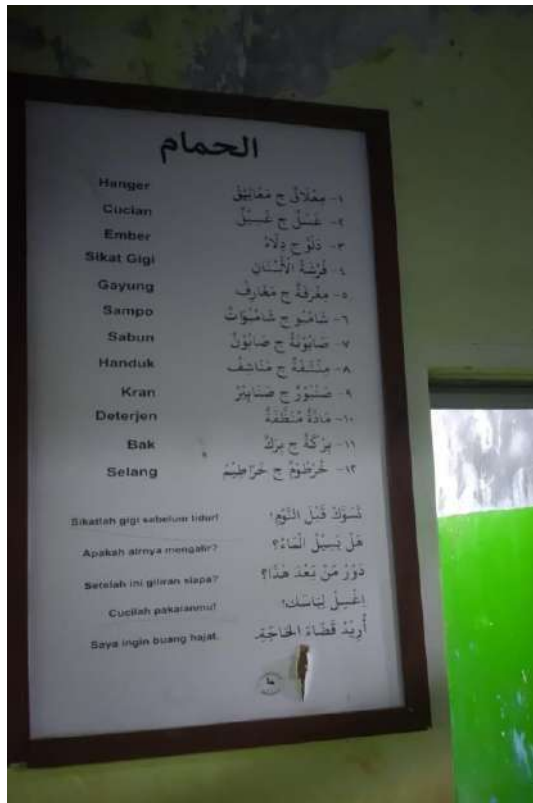 الحمام
Hanger ١- مِعْلَاقٌ ج مَعَالِيْقُ
Cucian ٢- غَسْلٌ ج غَسِيْلٌ
Ember ٣- دَلْوٌ ج دِلَاءٌ
Sikat Gigi ٤- فُرْشَةُ الْأَسْنَانِ
Gayung ٥- مِغْرَفَةٌ ج مَغَارِفُ
Sampo ٦- شَامْبُو ج شَامْبُوَاتٌ
Sabun ٧- صَابُوْنَةٌ ج صَابُوْنٌ
Handuk ٨- مِنْشَفَةٌ ج مَنَاشِفُ
Kran ٩- صَنْبُوْرٌ ج صَنَابِيْرُ
Deterjen ١٠- مَادَّةٌ مُنَظِّفَةٌ
Bak ١١- بِرْكَةٌ ج بِرَكٌ
Selang ١٢- خُرْطُوْمٌ ج خَرَاطِيْمُ
Sikatlah gigi sebelum tidur! تَسَوَّكْ قَبْلَ النَّوْمِ!
Apakah airnya mengalir? هَلْ يَسِيْلُ الْمَاءُ؟
Setelah ini giliran siapa? دَوْرُ مَنْ بَعْدَ هَذَا؟
Cucilah pakaianmu! اِغْسِلْ لِبَاسَك!
Saya ingin buang hajat. أُرِيْدُ قَضَاءَ الْحَاجَةِ.